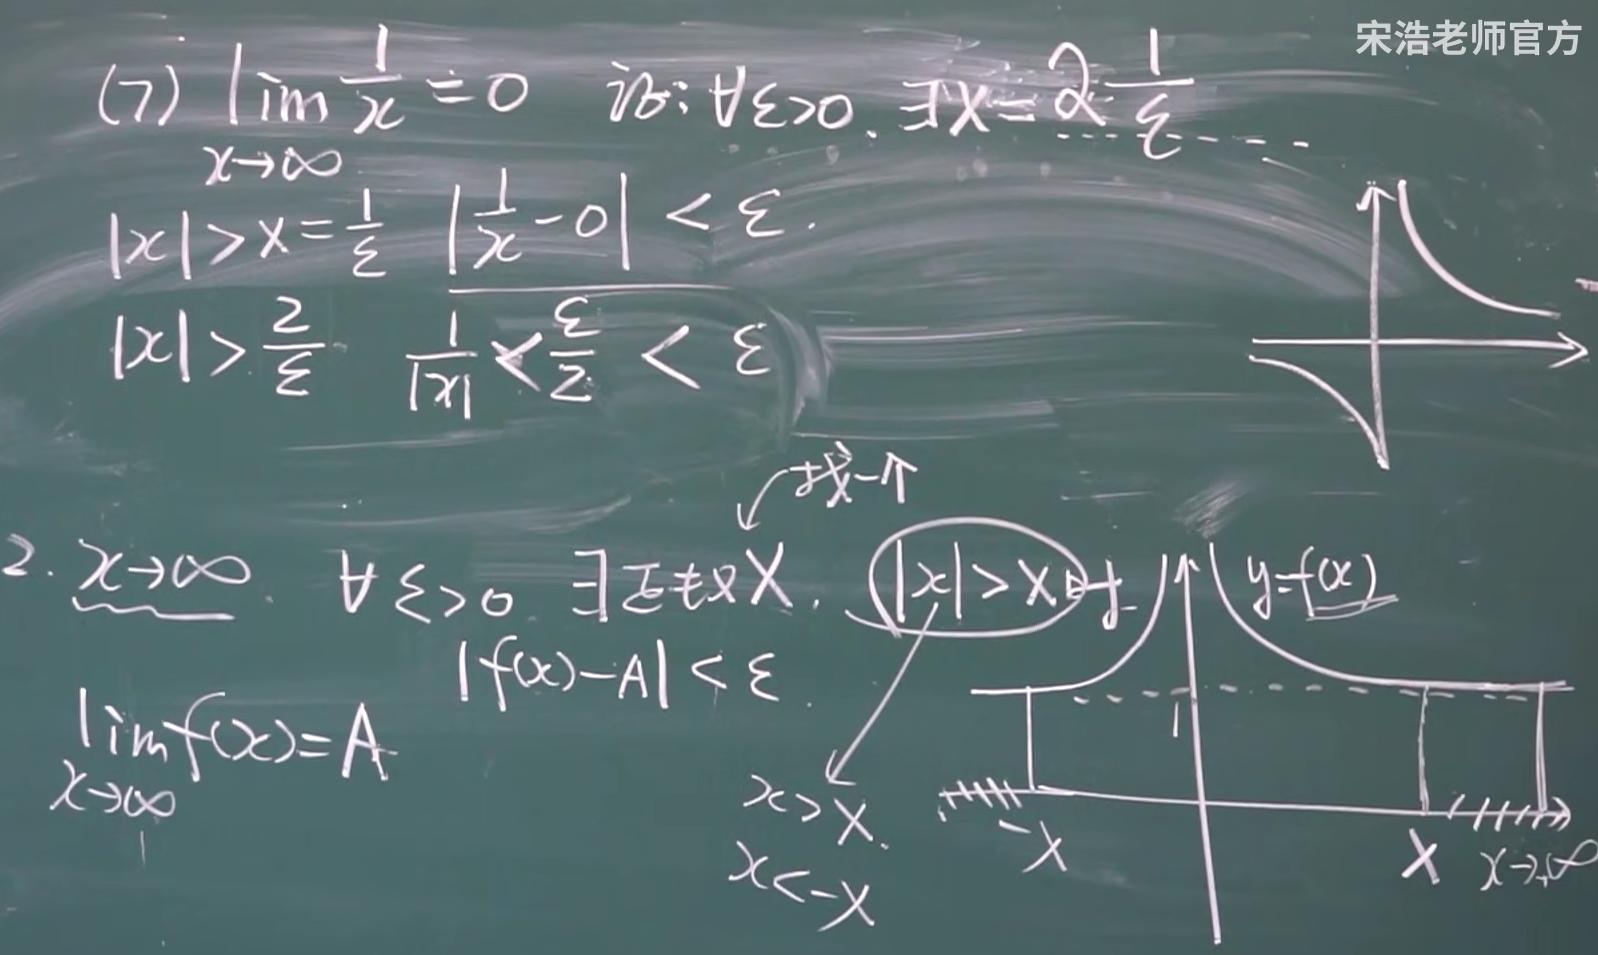 宋浩老师官方
(7) lim 1/x = 0 证: ∀ε>0. ∃X=2 1/ε
x→∞
|x|>X=1/ε |1/x-0| < ε.
|x|>2/ε 1/|x| < ε/2 < ε
找一个
2. x→∞. ∀ε>0 ∃正数X. |x|>X时 y=f(x)
|f(x)-A|<ε.
lim f(x)=A
x→∞
1
x>X.
x<-X
-X X x→+∞